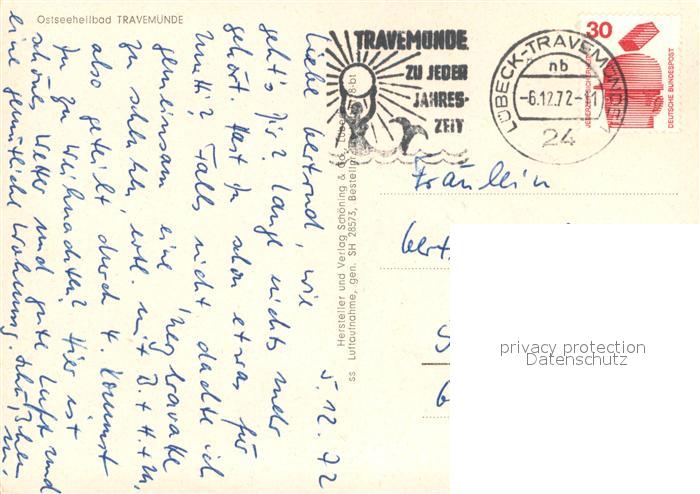 Ostseeheilbad TRAVEMÜNDE
TRAVEMÜNDE
ZU JEDER
JAHRES-
ZEIT
LÜBECK-TRAVEMÜNDE
nb
-6.12.72-
24
30
JEDERZEIT SICHERHEIT
DEUTSCHE BUNDESPOST
Fräulein
privacy protection
Datenschutz
Hersteller und Verlag Schöning & Co., Lübeck
ss Luftaufnahme, gen. SH 28573, Bestell
5.12.72
Liebe Gertrud, wie
geht's Dir? Lange nichts mehr
gehört. Hast Du schon etwas für
Mutti? Falls nicht, dachte ich
gemeinsam eine
zu schenken, evtl. mit B. + H. + M.
also geteilt durch 4. Kommst
Du zu Weihnachten? Hier ist
schönes Wetter und gute Luft und
eine gemütliche Wohnung.